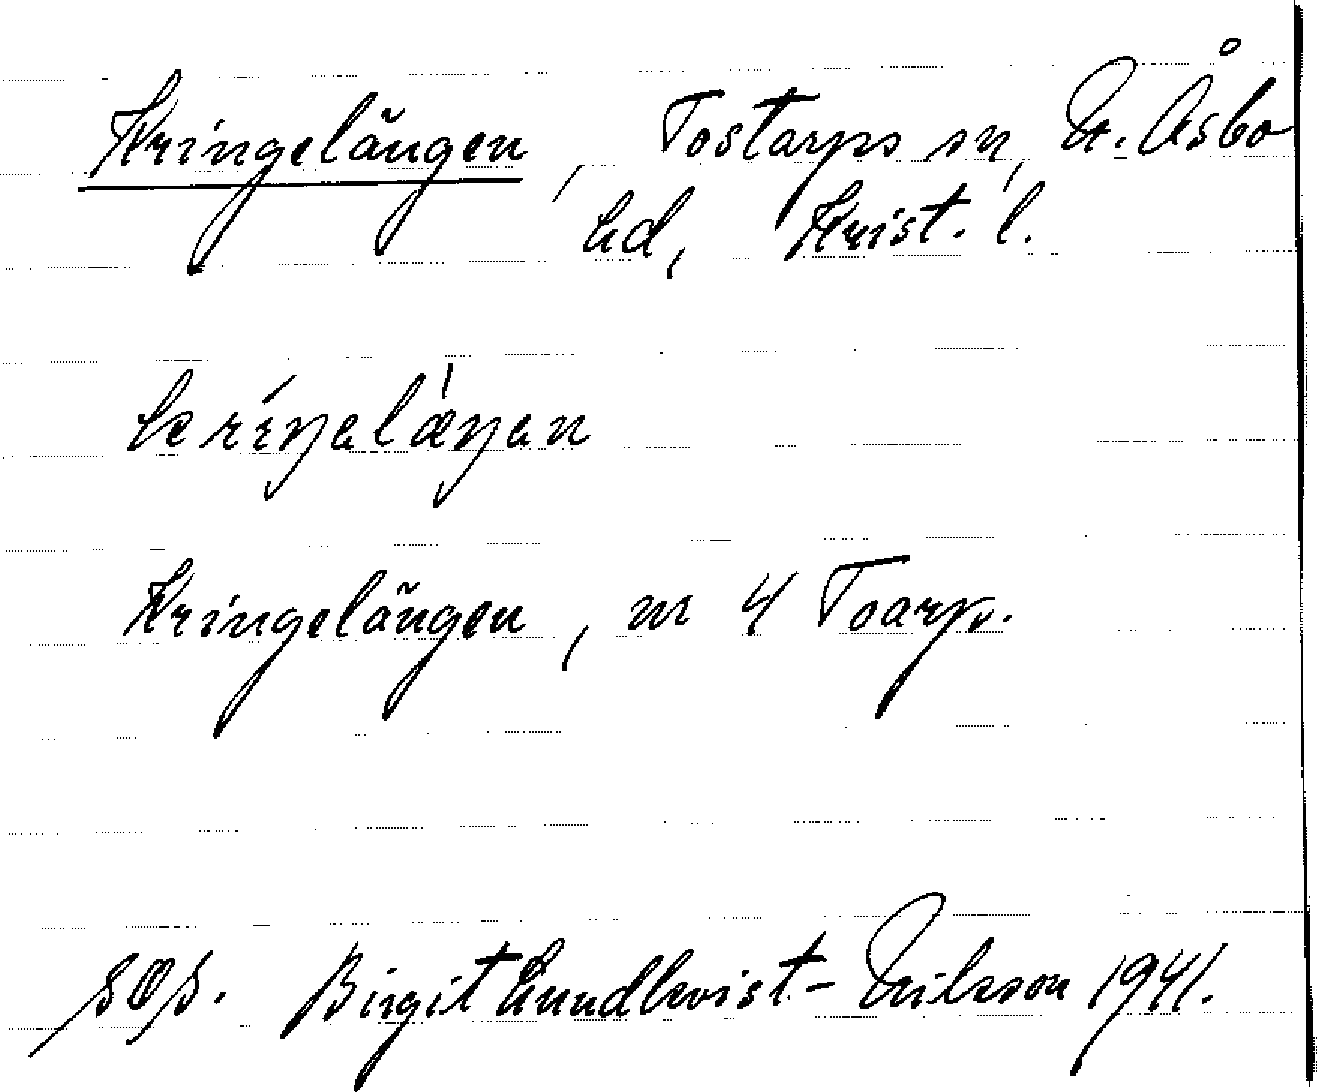 Kringelängen, Tostarps sn, N. Åsbo
hd, Krist. l.
kriŋəlæŋən
Kringelängen, nr 4 Toarp.
Birgit Lundkvist-Nilsson 1941.